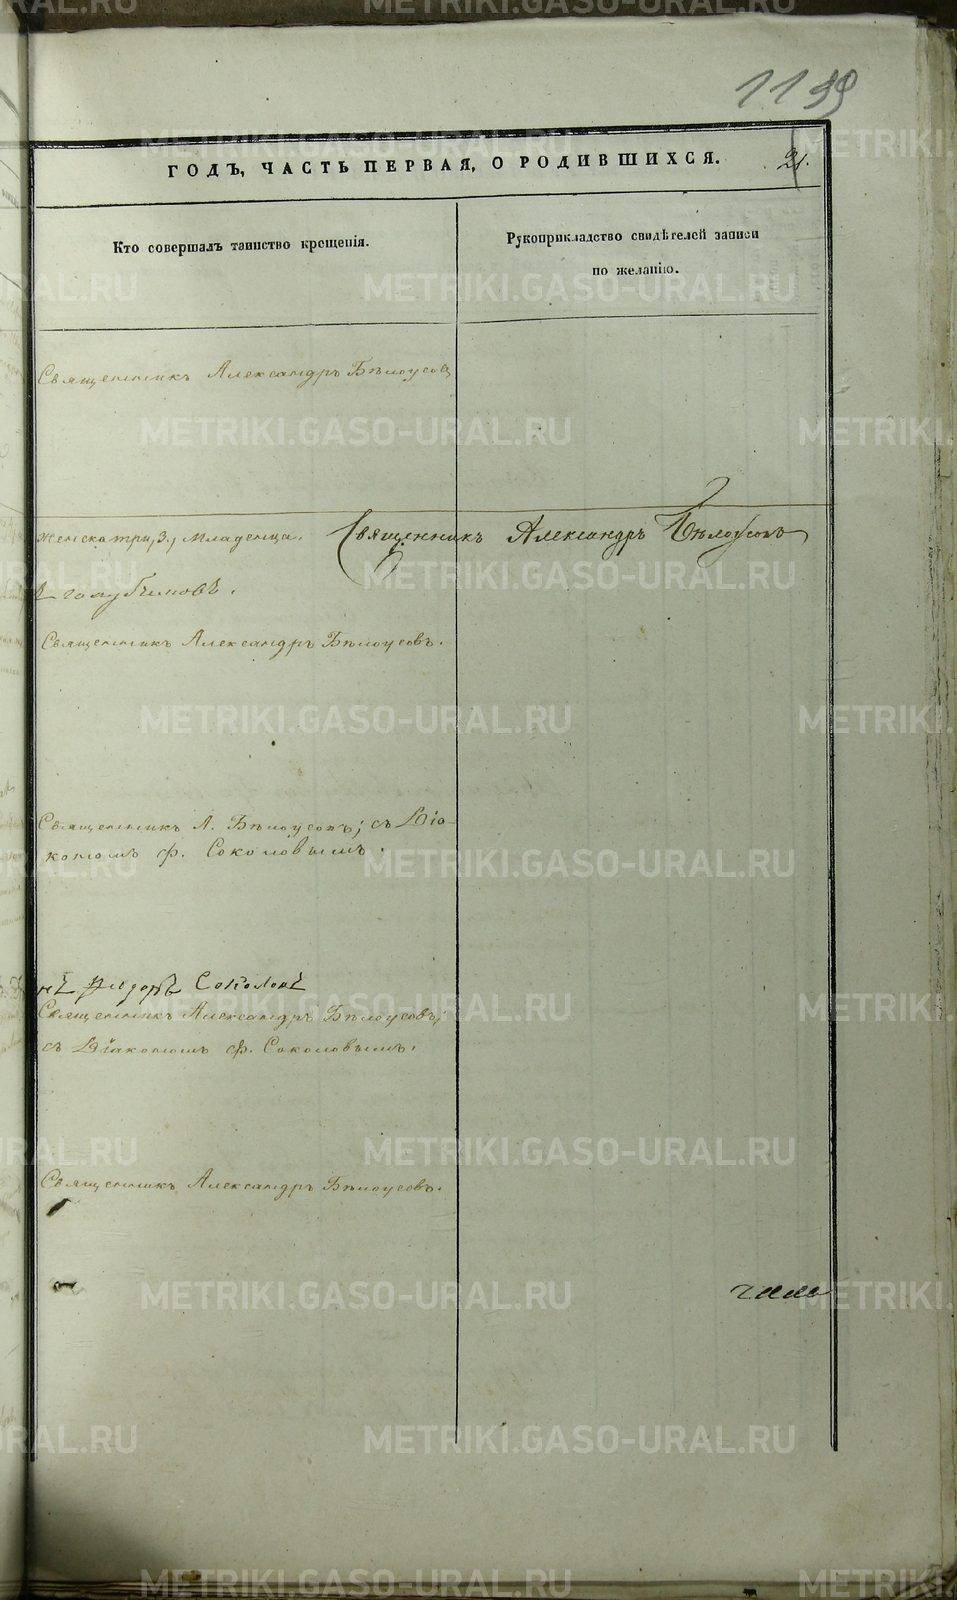 1139
ГОДЪ, ЧАСТЬ ПЕРВАЯ, О РОДИВШИХСЯ.
21.
Кто совершалъ таинство крещенія.
Рукоприкладство свидѣтелей записи
по желанію.
Священникъ Александръ Бѣлоусов
женска три, 3., младенца. Священникъ Александръ Бѣлоусовъ
Голубчиковъ.
Священникъ Александръ Бѣлоусовъ.
Священникъ А. Бѣлоусовъ; съ Діа-
кономъ Ф. Соколовымъ.
нъ Ѳедоръ Соколовъ
Священникъ Александръ Бѣлоусовъ;
съ Діакономъ Ф. Соколовымъ.
Священникъ Александръ Бѣлоусовъ.
METRIKI.GASO-URAL.RU